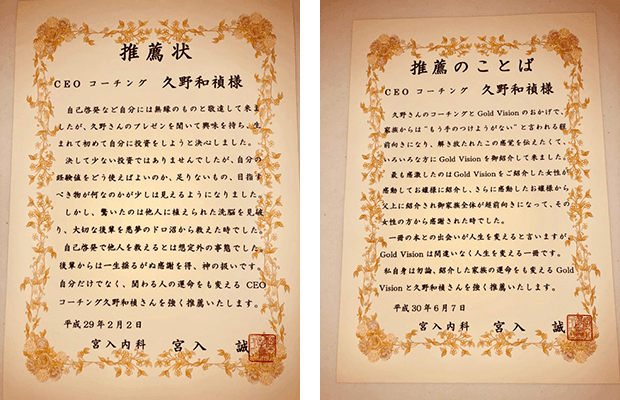 推薦状
CEO コーチング 久野和禎様
自己啓発など自分には無縁のものと敬遠して来ま
したが、久野さんのプレゼンを聞いて興味を持ち、生
まれて初めて自分に投資をしようと決心しました。
決して少ない投資ではありませんでしたが、自分の
経験値をどう使えばよいのか、足りないもの、目指す
べき物が何なのかが少しは見えるようになりました。
しかし、驚いたのは他人に植えられた洗脳を見破
り、大切な後輩を悪夢のドロ沼から救えた時でした。
自己啓発で他人を救えるとは想定外の事態でした
後輩からは一生揺るがぬ感謝を得、神の扱いです。
自分だけでなく、関わる人の運命をも変える CEO
コーチング久野和禎さんを強く推薦いたします。
平成29年2月2日
宮入内科 宮入 誠
推薦のことば
CEO コーチング 久野和禎様
久野さんのコーチングとGold Visionのおかげで、
家族からは“もう手のつけようがない”と言われる程
前向きになり、解き放たれたこの感覚を伝えたくて、
いろいろな方にGold Visionを御紹介して来ました。
最も感激したのはGold Visionをご紹介した女性が
感動してお嬢様に紹介し、さらに感動したお嬢様から
父上に紹介され御家族全体が前向きになって、その
女性の方から感謝された時でした。
一冊の本との出会いが人生を変えると言いますが
Gold Visionは間違いなく人生を変える一冊です。
私自身は勿論、紹介した家族の運命をも変えるGold
Visionと久野和禎さんを強く推薦いたします。
平成30年6月7日
宮入内科 宮入 誠